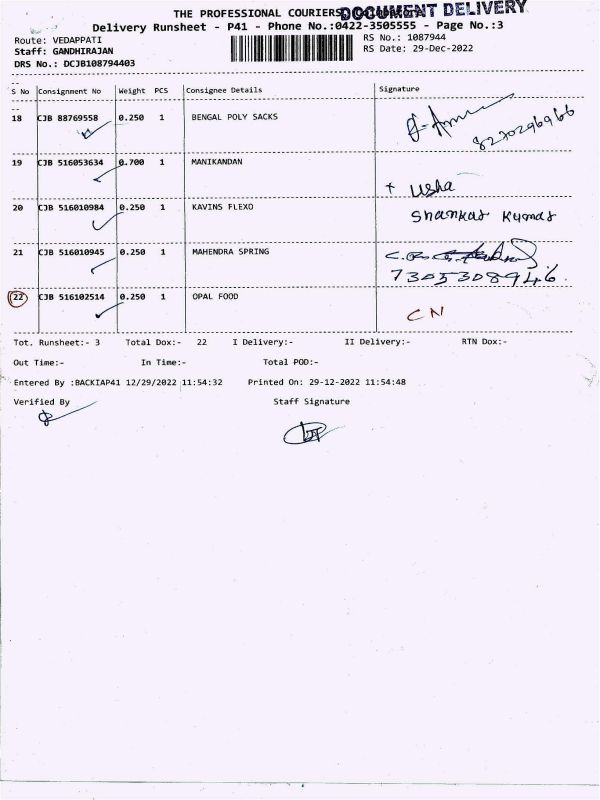 THE PROFESSIONAL COURIERS
DOCUMENT DELIVERY
Delivery Runsheet - P41 - Phone No.:0422-3505555 - Page No.:3
Route: VEDAPPATI RS No.: 1087944
Staff: GANDHIRAJAN RS Date: 29-Dec-2022
DRS No.: DCJB108794403
S No Consignment No Weight PCS Consignee Details Signature
18 CJB 88769558 0.250 1 BENGAL POLY SACKS
8270296966
19 CJB 516053634 0.700 1 MANIKANDAN
+ Usha
20 CJB 516010984 0.250 1 KAVINS FLEXO Shankar Kumar
21 CJB 516010945 0.250 1 MAHENDRA SPRING
7305308946.
22 CJB 516102514 0.250 1 OPAL FOOD
CN
Tot. Runsheet:- 3 Total Dox:- 22 I Delivery:- II Delivery:- RTN Dox:-
Out Time:- In Time:- Total POD:-
Entered By :BACKIAP41 12/29/2022 11:54:32 Printed On: 29-12-2022 11:54:48
Verified By Staff Signature